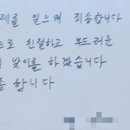 를 일으켜 죄송합니다
로 친절하고 부드러운
맞이를 하겠습니다
합니다